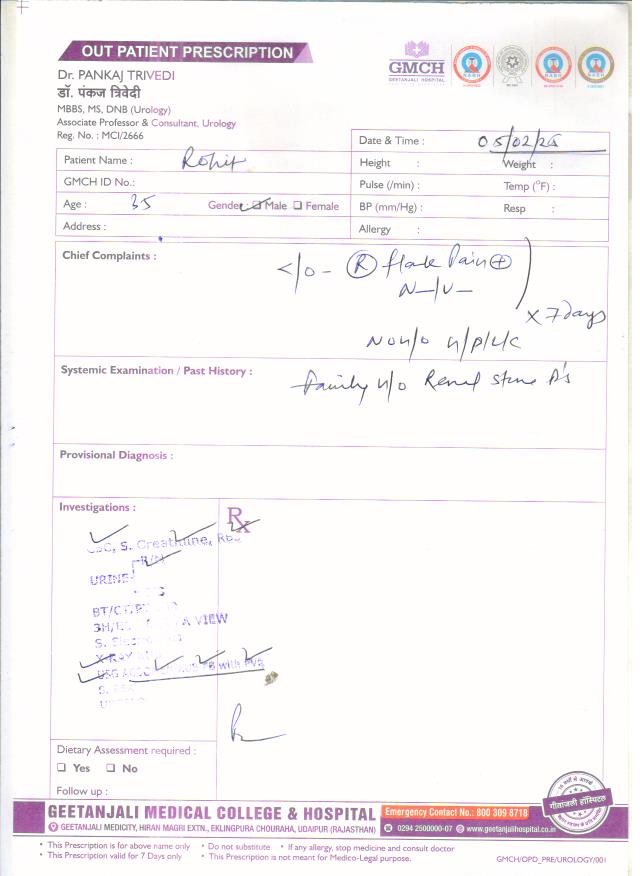 OUT PATIENT PRESCRIPTION
GMCH
GEETANJALI HOSPITAL
Dr. PANKAJ TRIVEDI
डॉ. पंकज त्रिवेदी
MBBS, MS, DNB (Urology)
Associate Professor & Consultant, Urology
Reg. No. : MCI/2666
Date & Time : 05/02/25
Patient Name : Rohit
Height : Weight :
GMCH ID No.:
Pulse (/min) : Temp (°F) :
Age : 35 Gender : Male Female
BP (mm/Hg) : Resp :
Address :
Allergy :
Chief Complaints :
C/O - R flank Pain +
N-/V-
x 7 days
NO H/O
Systemic Examination / Past History :
Family H/O Renal stone
Provisional Diagnosis :
Investigations :
Rx
CBC, S. Creatinine, RBS
URINE
BT/CT,
VIEW
X-Ray
USG with PVR
Dietary Assessment required :
Yes No
Follow up :
GEETANJALI MEDICAL COLLEGE & HOSPITAL
Emergency Contact No.: 800 309 8718
GEETANJALI MEDICITY, HIRAN MAGRI EXTN., EKLINGPURA CHOURAHA, UDAIPUR (RAJASTHAN)
0294 2500000-07 www.geetanjalihospital.co.in
गीतांजली हॉस्पिटल
• This Prescription is for above name only • Do not substitute • If any allergy, stop medicine and consult doctor
• This Prescription valid for 7 Days only • This Prescription is not meant for Medico-Legal purpose.
GMCH/OPD_PRE/UROLOGY/001